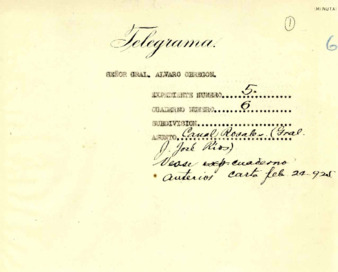 MINUTA
1
6
Telegrama.
SEÑOR GRAL. ALVARO OBREGON.
EXPEDIENTE NUMERO. 5.
CUADERNO NUMERO. 6
SUBDIVISION
ASUNTO. Canal Rosales (Gral.
J. José Ríos)
Vease exp. cuaderno
anterior carta feb 24-925